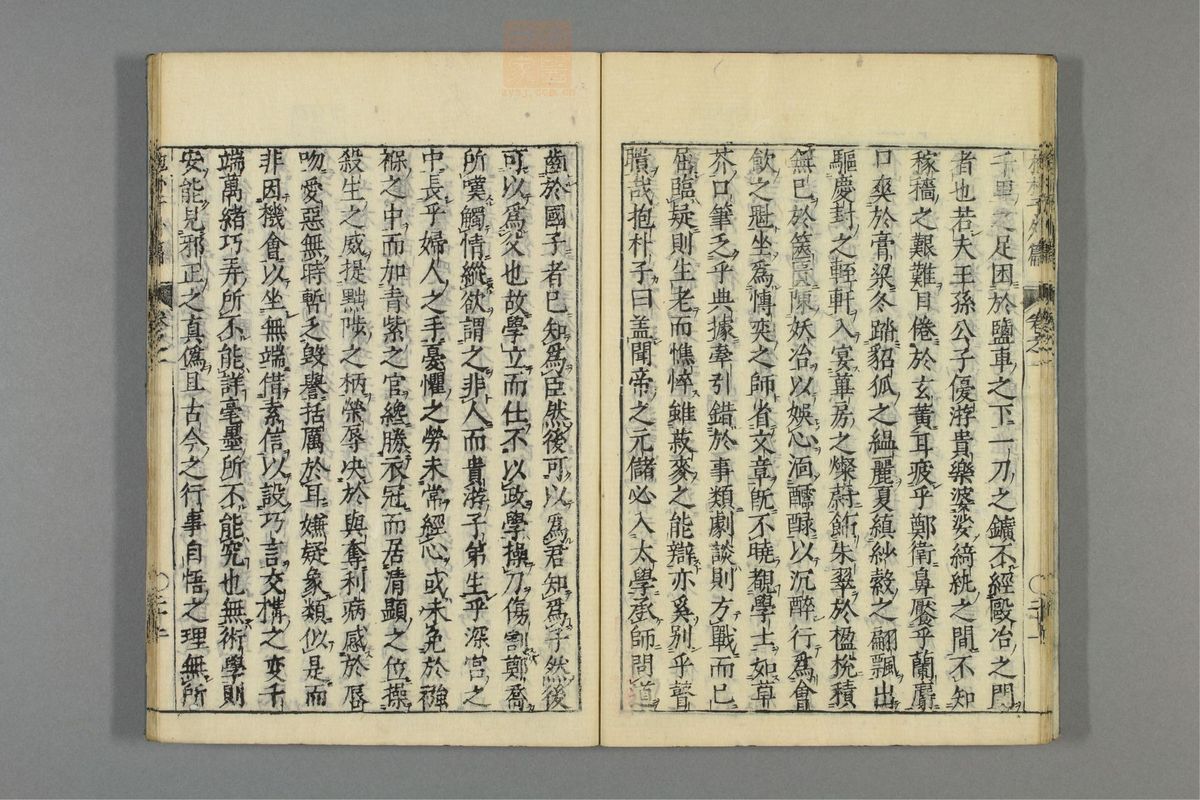 千里之足困於鹽車之下一刀之鑛不經毆冶之門
者也若夫王孫公子優游貴樂婆娑綺紈之間不知
稼穡之艱難目倦於玄黃耳疲乎鄭衛鼻饜乎蘭麝
口爽於膏粱冬踏貂狐之縕麗夏縝紗縠之翩飄出
驅慶封之輕軒入宴華房之燦蔚飾朱翠於楹梲積
無已於篋匱陳妖冶以娛心湎醹醁以沉醉行爲會
飲之魁坐爲慱奕之師省文章旣不曉覩學士如草
芥口筆乏乎典據牽引錯於事類劇談則方戰而已
屈臨疑則生老而憔悴雖菽麥之能辯亦奚別乎瞽
聵哉抱朴子曰盖聞帝之元儲必入太學承師問道
齒於國子者已知爲臣然後可以爲君知爲子然後
可以爲父也故學立而仕不以政學操刀傷割鄭喬
所嘆觸情縱欲謂之非人而貴游子弟生乎深宮之
中長乎婦人之手憂懼之勞未常經心或未免於襁
褓之中而加青紫之官纔勝衣冠而居清顯之位操
殺生之威提黜陟之柄榮辱决於與奪利病感於唇
吻愛惡無時暫乏毀譽括厲於耳嫌疑象類似是而
非因機會以坐無端借素信以設巧言交構之变千
端萬緒巧弄所不能詳毫墨所不能究也無術學則
安能見邪正之真僞且古今之行事自悟之理無所